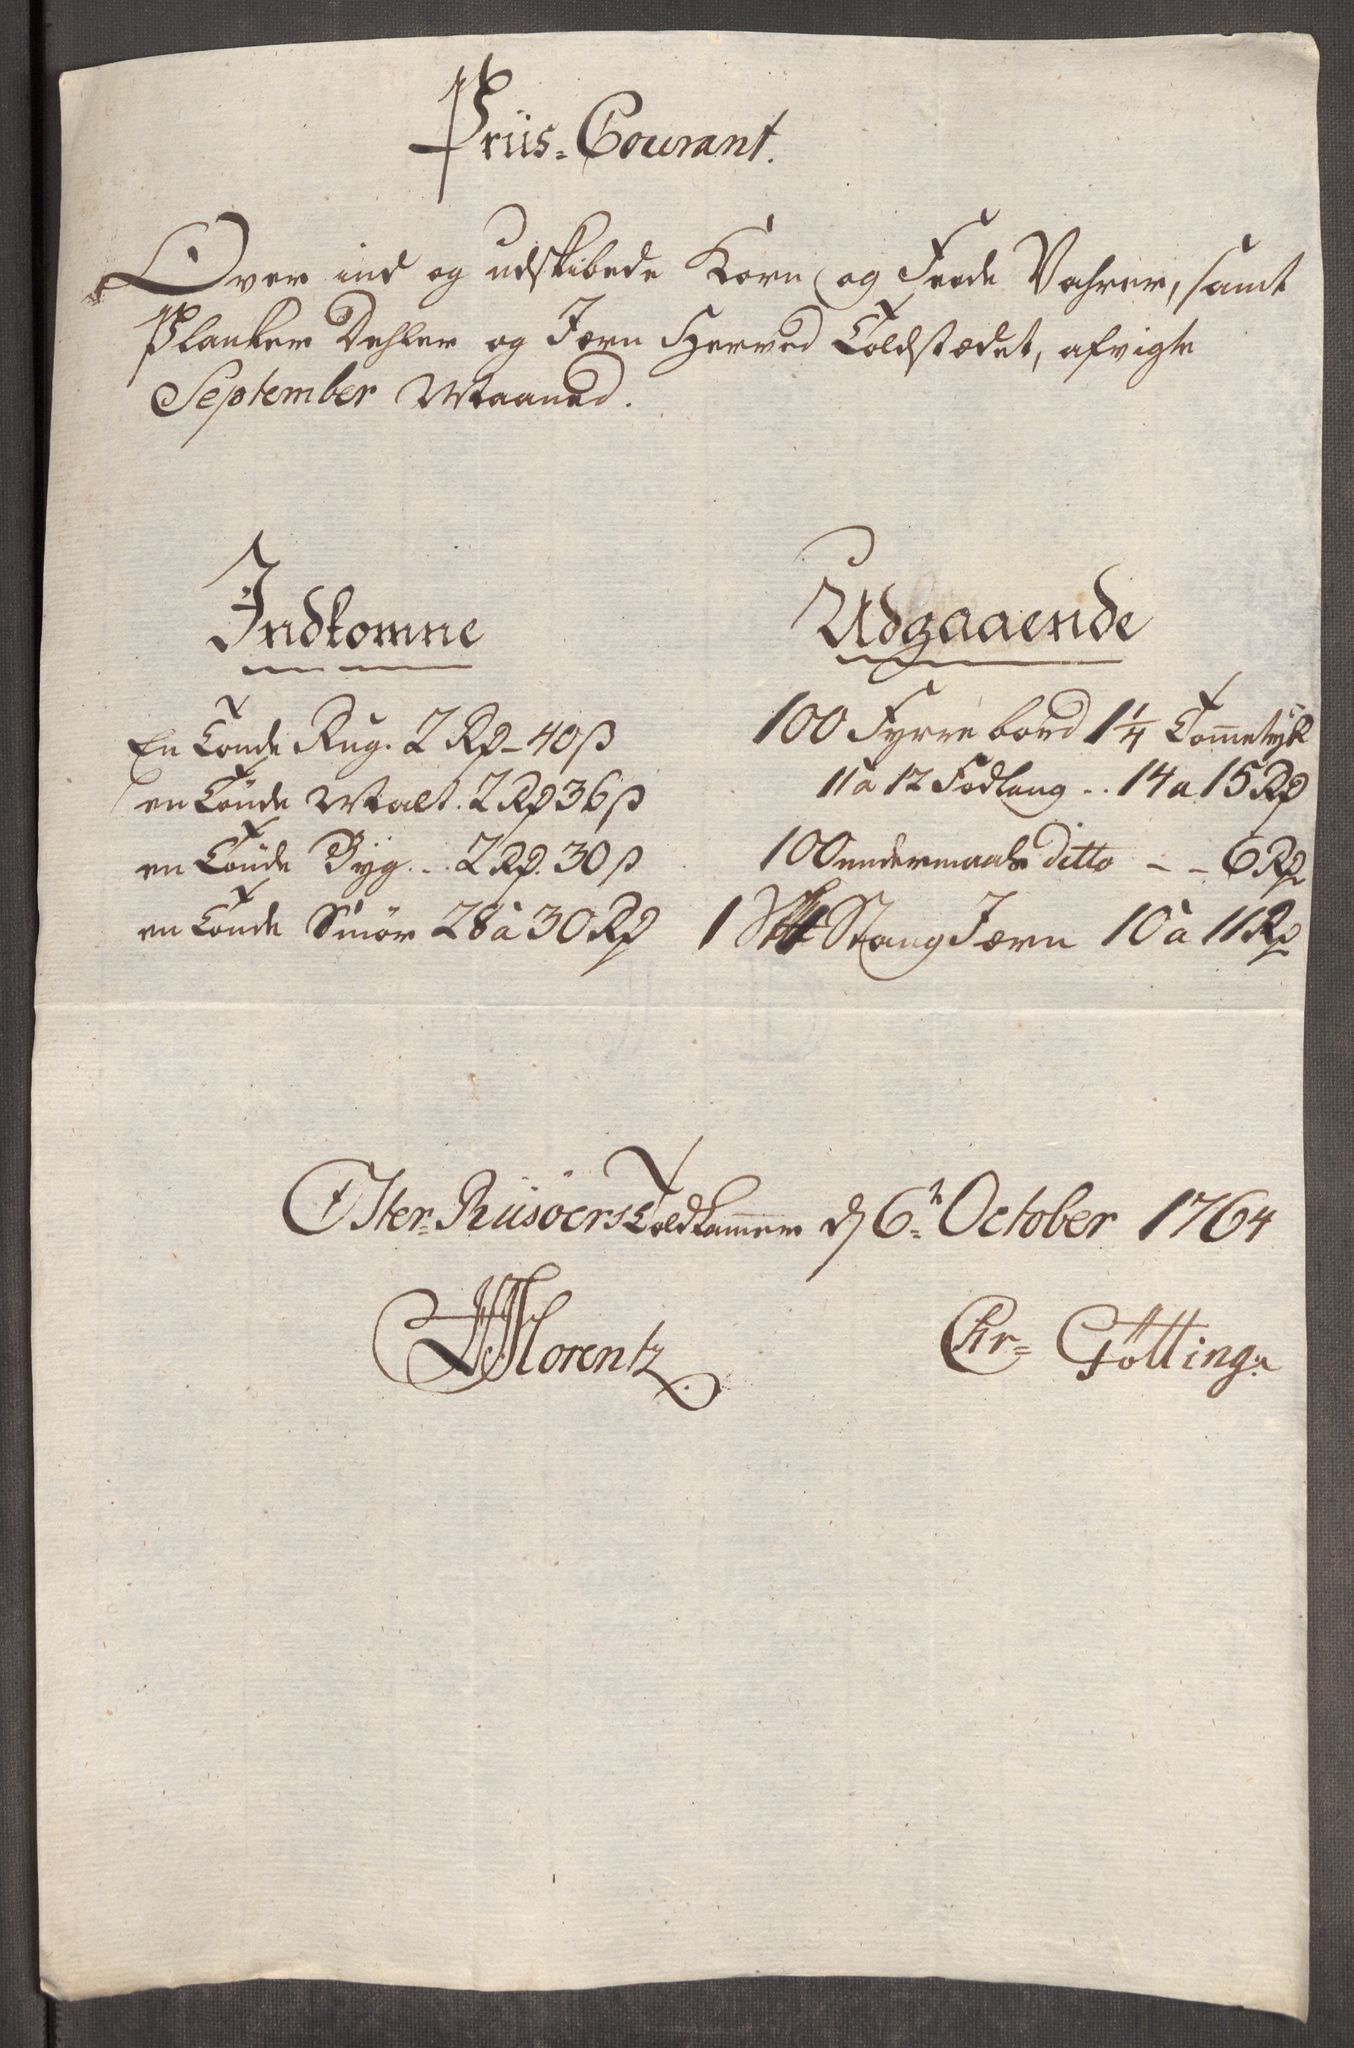 Priis-Courant.
Over ind og udskibede Korn og Feede Vahrer, samt
Planker Dehler og Jærn Herved Toldstædet, afvigte
September Maaned.
Indkomne
En Tønde Rug. 2 Rd 40 ß
en Tønde Malt. 2 Rd 36 ß
en Tønde Byg... 2 Rd. 30 ß
en Tønde Smör 28 à 30 Rd
Udgaaende
100 Fyrre bord 1 1/4 Tommetyk
11 a 12 Fod lang .. 14 a 15 Rd
100 undermaals Ditto - - 6 Rd
1 Stang Jærn 10 à 11 Rd
Öster-Riisöers Toldkammer d 6te October 1764
Lorentz
Chr= Götting.